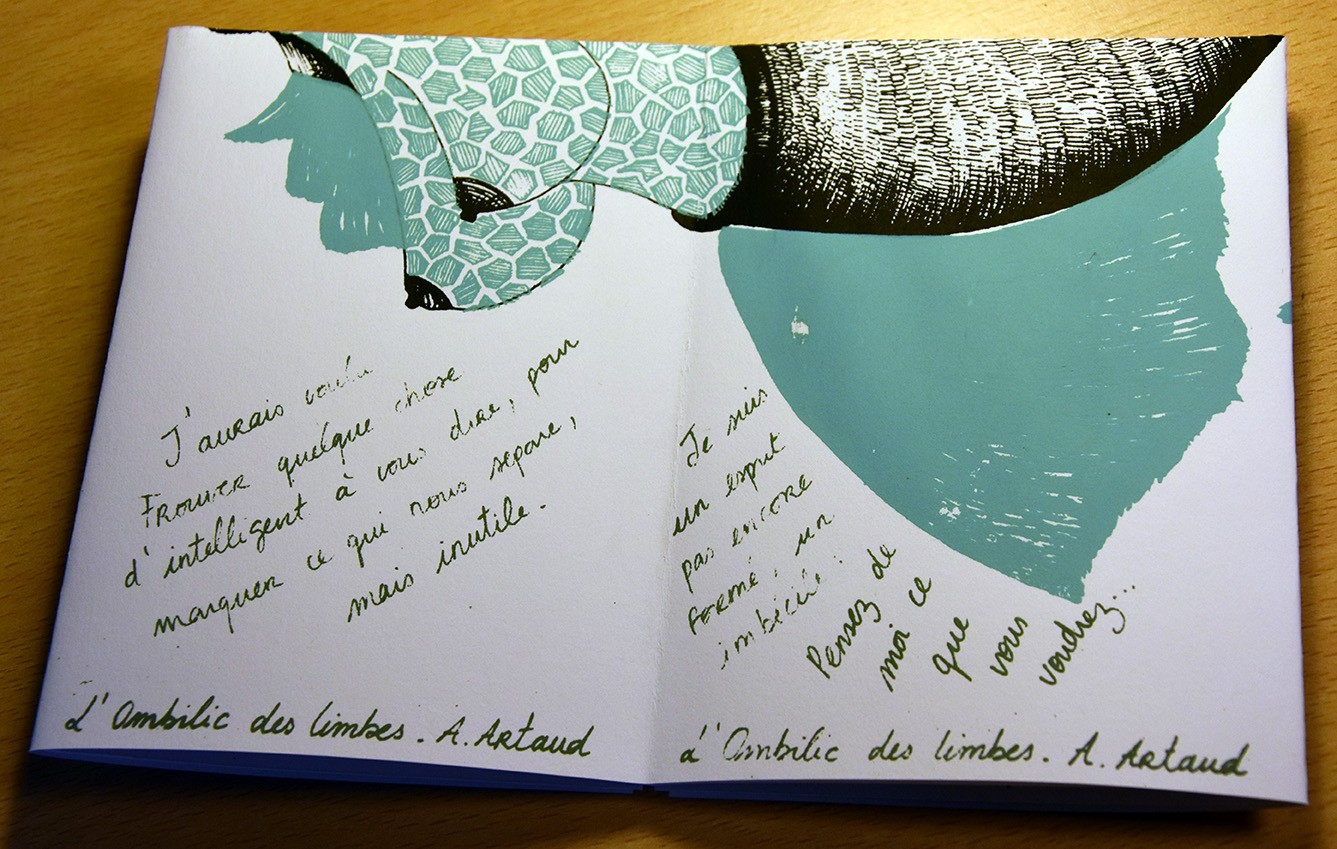 J'aurais voulu
trouver quelque chose
d'intelligent à vous dire, pour
marquer ce qui nous sépare,
mais inutile.
L'Ombilic des limbes. A. Artaud
Je suis
un esprit
pas encore
formé, un
imbécile :
Pensez de
moi ce
que
vous
voudrez...
L'Ombilic des limbes. A. Artaud